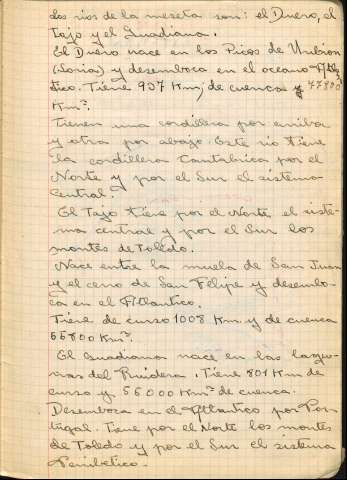 dos rios de la meseta son: el Duero, el
Tajo y el Guadiana.
El Duero nace en los Picos de Urbion
(Soria) y desemboca en el oceano Atlan
tico. Tiene 937 Km; de cuenca y 47800
Km².
Tienen una cordillera por arriba
y otra por abajo. Este rio tiene
la cordillera Cantabrica por el
Norte y por el Sur el sistema
Central.
El Tajo tiene por el Norte el siste-
ma central y por el Sur los
montes de Toledo.
Nace entre la muela de San Juan
y el cerro de San Felipe y desembo-
ca en el Atlantico.
Tiene de curso 1008 Km. y de cuenca
55800 Km².
El Guadiana nace en las lagu-
nas del Ruidera. Tiene 801 Km de
curso y 56000 Km² de cuenca.
Desemboca en el Atlantico por Por-
tugal. Tiene por el Norte los montes
de Toledo y por el Sur el sistema
Penibetico.